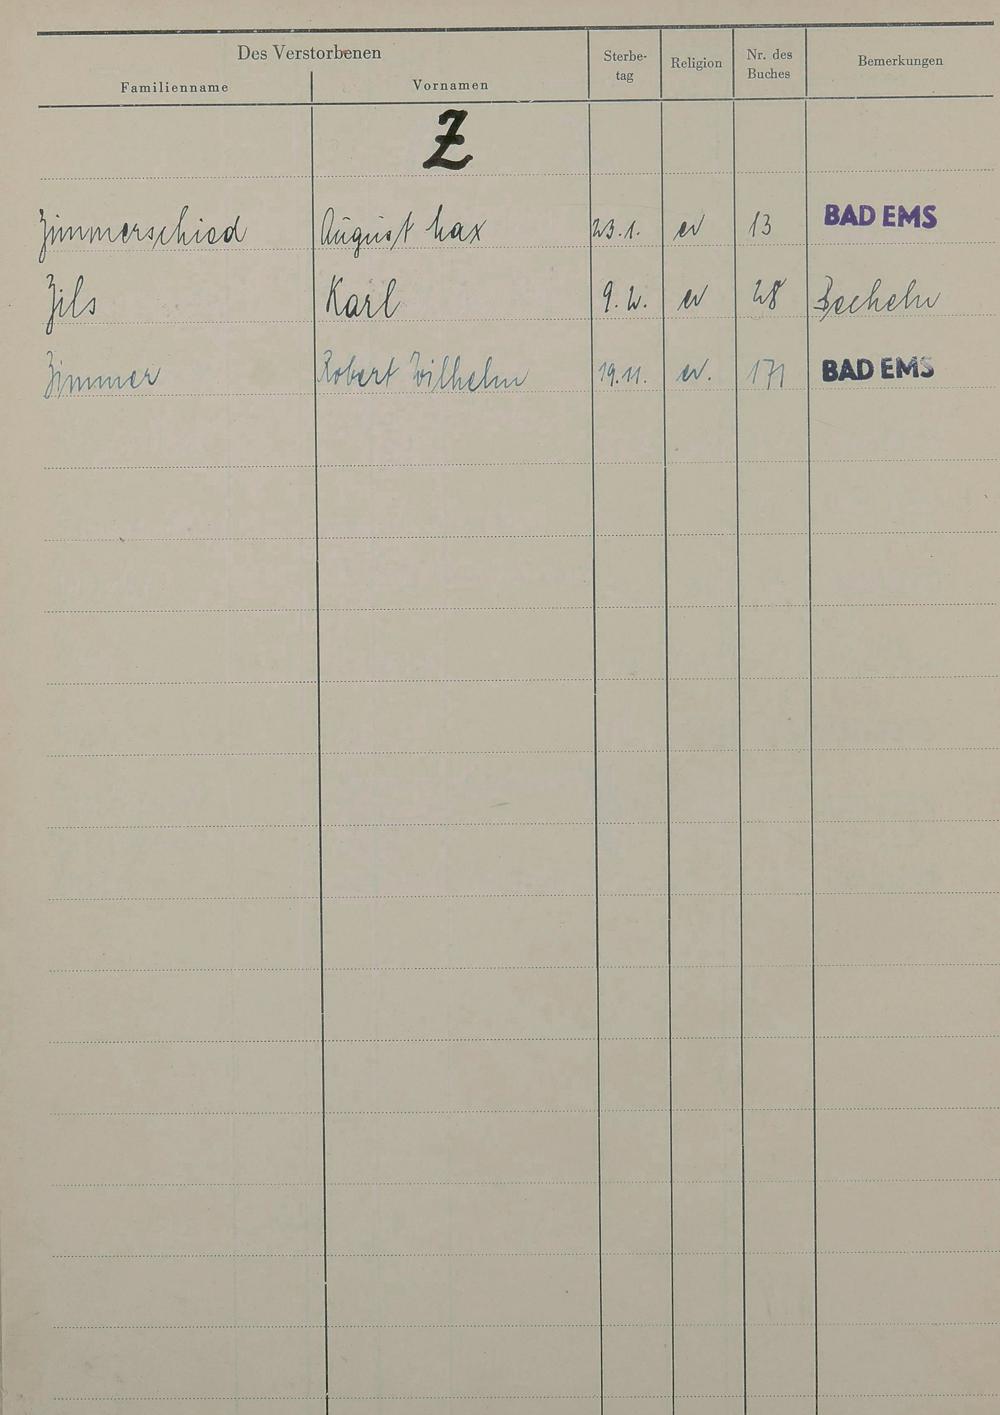 Des Verstorbenen
Familienname Vornamen Sterbe- tag Religion Nr. des Buches Bemerkungen
Z
Zimmerschied August Max 23.1. ev 13 BAD EMS
Zils Karl 9.2. ev 28 Becheln
Zimmer Robert Wilhelm 19.11. ev. 171 BAD EMS